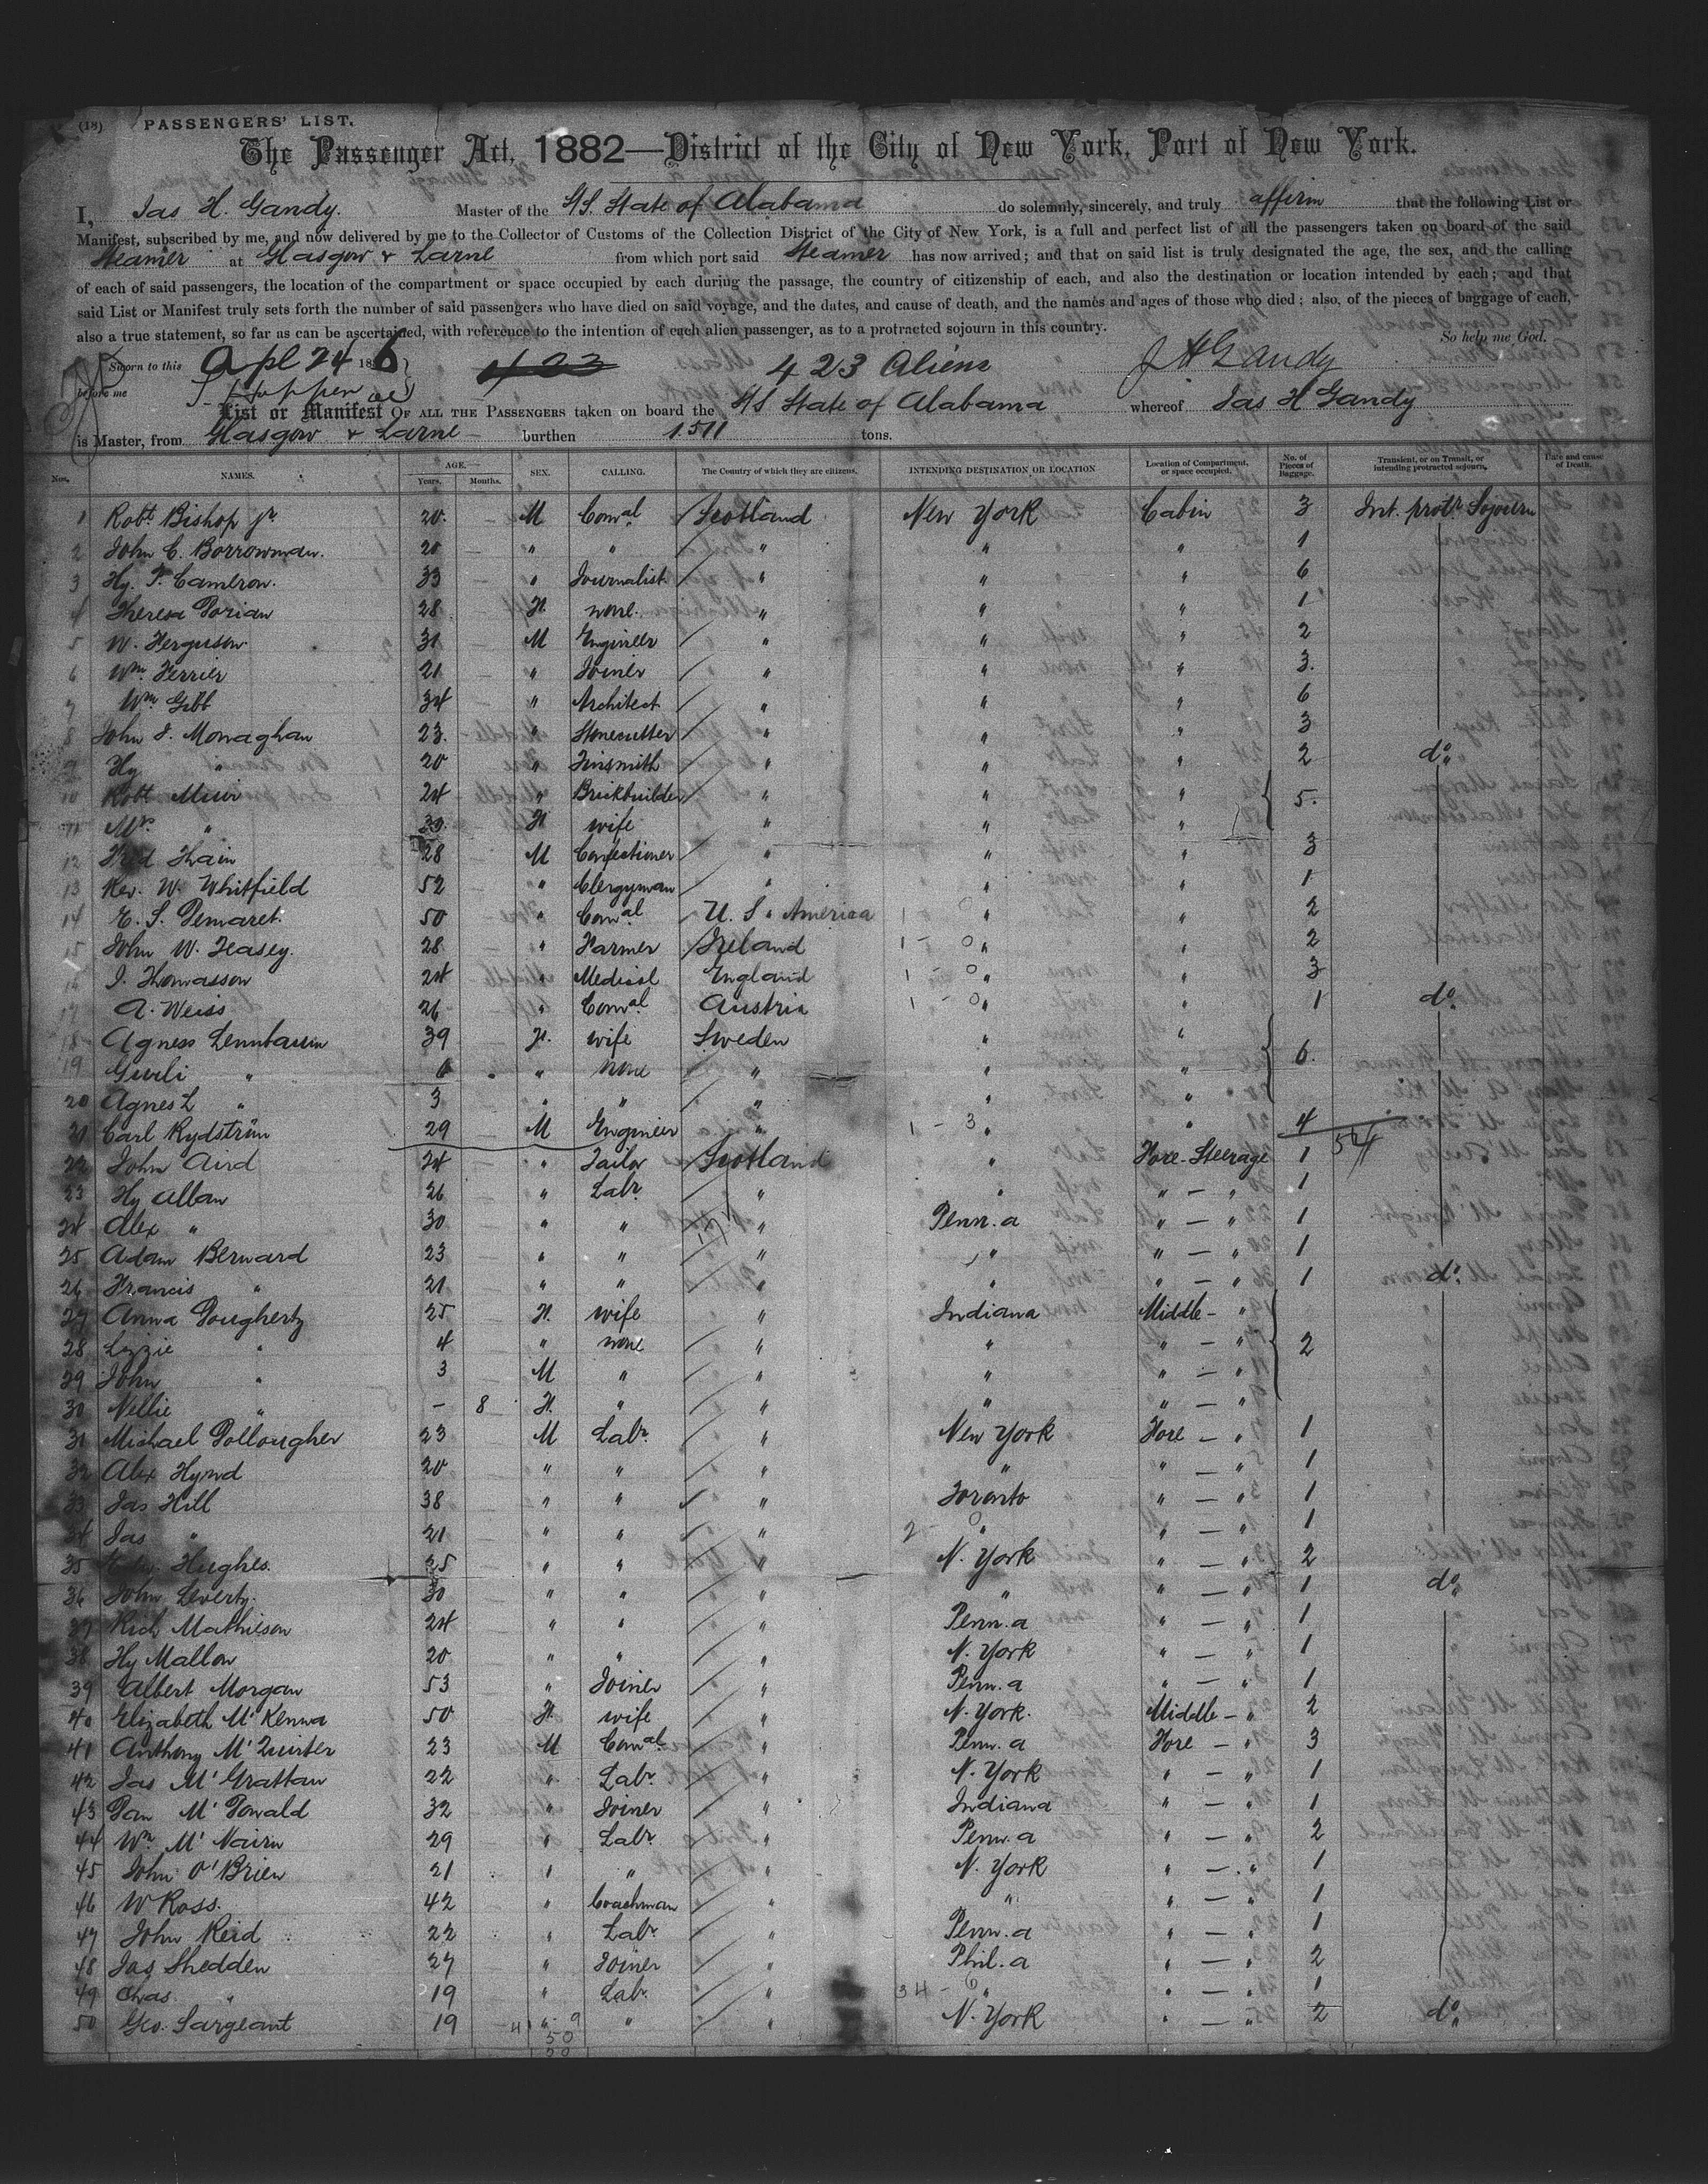 (18) PASSENGERS' LIST.
The Passenger Act, 1882—District of the City of New York, Port of New York.
I, Jas H. Gandy. Master of the S/S. State of Alabama do solemnly, sincerely, and truly affirm that the following List or
Manifest, subscribed by me, and now delivered by me to the Collector of Customs of the Collection District of the City of New York, is a full and perfect list of all the passengers taken on board of the said
Steamer at Glasgow & Larne from which port said Steamer has now arrived; and that on said list is truly designated the age, the sex, and the calling
of each of said passengers, the location of the compartment or space occupied by each during the passage, the country of citizenship of each, and also the destination or location intended by each; and that
said List or Manifest truly sets forth the number of said passengers who have died on said voyage, and the dates, and cause of death, and the names and ages of those who died; also, of the pieces of baggage of each,
also a true statement, so far as can be ascertained, with reference to the intention of each alien passenger, as to a protracted sojourn in this country. So help me God.
Sworn to this Apl 24 1886 423 423 Aliens J H Gandy
before me
List or Manifest OF ALL THE PASSENGERS taken on board the S/S State of Alabama whereof Jas H Gandy
is Master, from Glasgow & Larne burthen 1511 tons.
Nos. NAMES. AGE. Years. Months. SEX. CALLING. The Country of which they are citizens. INTENDING DESTINATION OR LOCATION Location of Compartment, or space occupied. No. of Pieces of Baggage. Transient, or on Transit, or intending protracted sojourn. Date and cause of Death.
1 Robt Bishop jr. 20 M Comal Scotland New York Cabin 3 Int. protr Sojourn
2 John C. Borrowman. 20 " " " " " 1
3 Hy. T. Cameron. 33 " Journalist " " " 6
4 Theresa Dorian 28 F. none. " " " 1
5 W. Ferguson 31 M Engineer " " " 2
6 Wm. Ferrier 21 " Joiner " " " 3.
7 Wm Gibb 34 " Architect " " " 6
8 John J. Monaghan 23. " Stonecutter " " " 3
9 Hy " 20 " Tinsmith " " " 2 do.
10 Robt Muir 24 " Brickbuilder " " " 5.
11 Mrs. " 30. F. wife " " "
12 Fred Thain 28 M Confectioner " " " 3
13 Rev. W. Whitfield 52 " Clergyman " " " 1
14 E. S. Demaret. 50 " Comal U. S. America 1 - 0 " " 2
15 John W. Feasey. 28 " Farmer Ireland 1 - 0 " " 2
16 J. Thomasson 24 " Medical England 1 - 0 " " 3
17 A. Weiss 26 " Comal Austria 1 - 0 " " 1 do.
18 Agness Lennbaum 39 F. wife Sweden " " 6.
19 Gurli " 6 " none " " "
20 Agnes L " 3 " " " " "
21 Carl Rydström 29 M Engineer " 1 - 3 " " 4
22 John Aird 24 " Tailor Scotland " Fore-Steerage 1
23 Hy Allan 26 " Labr. " " " — " 1
24 Alex " 30 " " " Penn.a " — " 1
25 Adam Bernard 23 " " " " " — " 1
26 Francis " 21 " " " " " — " 1 do.
27 Anna Dougherty 25 F. wife " Indiana Middle - " 2
28 Lizzie " 4 " none " " " — "
29 John " 3 M " " " " — "
30 Nellie " - 8 F. " " " " — "
31 Michael Dollougher 23 M Labr. " New York Fore — " 1
32 Alex Hynd 20 " " " " " — " 1
33 Jas Hill 38 " " " Toronto " — " 1
34 Jas " 21 " " " 2 - 0 " " — " 1
35 Hughes. 35 " " " N. York " — " 2
36 John Leverty. 30 " " " " " — " 1 do.
37 Rich Mathieson 24 " " " Penn.a " — " 1
38 Hy Mallon 20 " " " N. York " — " 1
39 Albert Morgan 53 " Joiner " Penn.a " — " 1
40 Elizabeth McKenna 50 F. wife " N. York. Middle — " 2
41 Anthony McQuirter 23 M Comal " Penn.a Fore — " 3
42 Jas McGrattan 22 " Labr. " N. York " — " 1
43 Dan McDonald 32 " Joiner " Indiana " — " 1
44 Wm McNairn 29 " Labr. " Penn.a " — " 2
45 John O'Brien 21 " " " N. York " — " 1
46 W Ross. 42 " Coachman " " " — " 1
47 John Reid 22 " Labr " Penn.a " — " 1
48 Jas Shedden 27 " Joiner " Phil.a " — " 2
49 Chas. " 19 " Labr. " 34 - 0 " " — " 1
50 Geo. Sargeant 19 " " " N. York " — " 2 do.